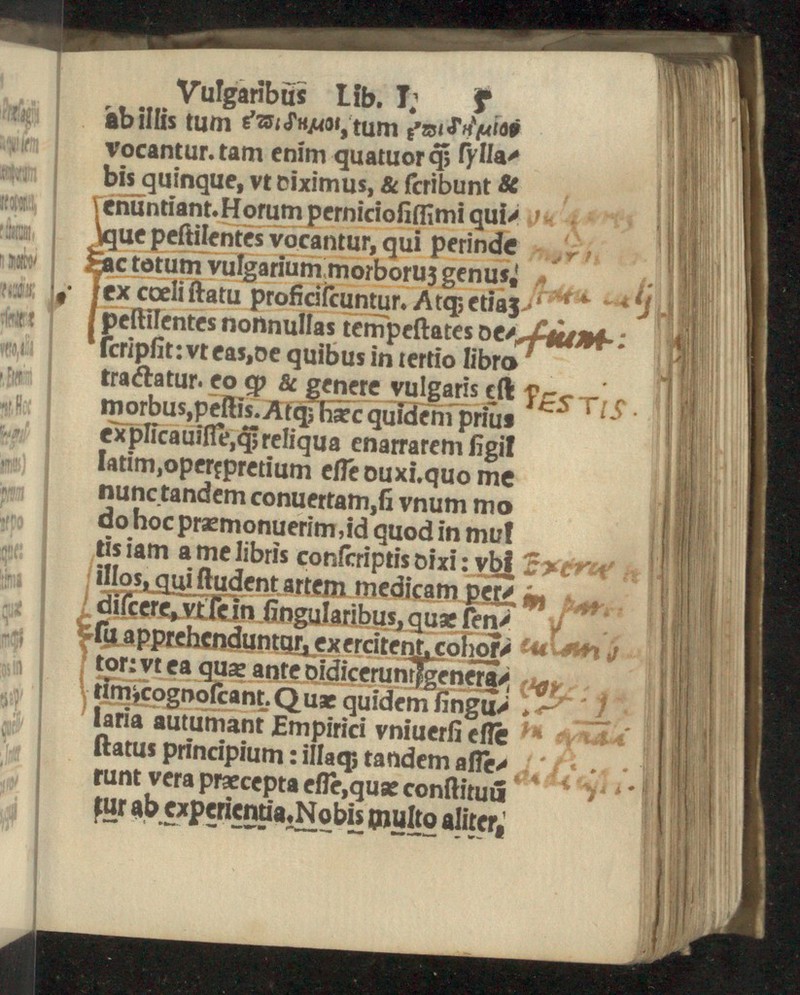 Vulgaribus Lib. I. 5
ab illis tum ἐπιδημοι, tum ἐπιδήμιοι
vocantur. tam enim quatuor q̃; ſylla⸗
bis quinque, vt diximus, & ſcribunt &
enuntiant. Horum pernicioſiſſimi qui⸗
que peſtilentes vocantur, qui perinde
ac totum vulgarium morboruʒ genus,
ex cœli ſtatu proficiſcuntur. Atq; etiaʒ
peſtilentes nonnullas tempeſtates de⸗
ſcripſit: vt eas, de quibus in tertio libro
tractatur. eo ꝙ & genere vulgaris eſt
morbus, peſtis. Atq; hæc quidem prius
explicauiſſe, q̃; reliqua enarrarem ſigil
latim, operępretium eſſe duxi. quo me
nunc tandem conuertam, ſi vnum mo
do hoc præmonuerim, id quod in mul
tis iam a me libris conſcriptis dixi: vbi
illos, qui ſtudent artem medicam per⸗
diſcere, vt ſe in ſingularibus, quæ ſen⸗
ſu apprehenduntur, exercitent, cohor⸗
tor: vt ea quæ ante didicerunt genera⸗
tim, cognoſcant. Quæ quidem ſingu⸗
laria autumant Empirici vniuerſi eſſe
ſtatus principium: illaq; tandem aſſe⸗
runt vera præcepta eſſe, quæ conſtituũ
tur ab experientia. Nobis multo aliter,
fiunt:
PESTIS.